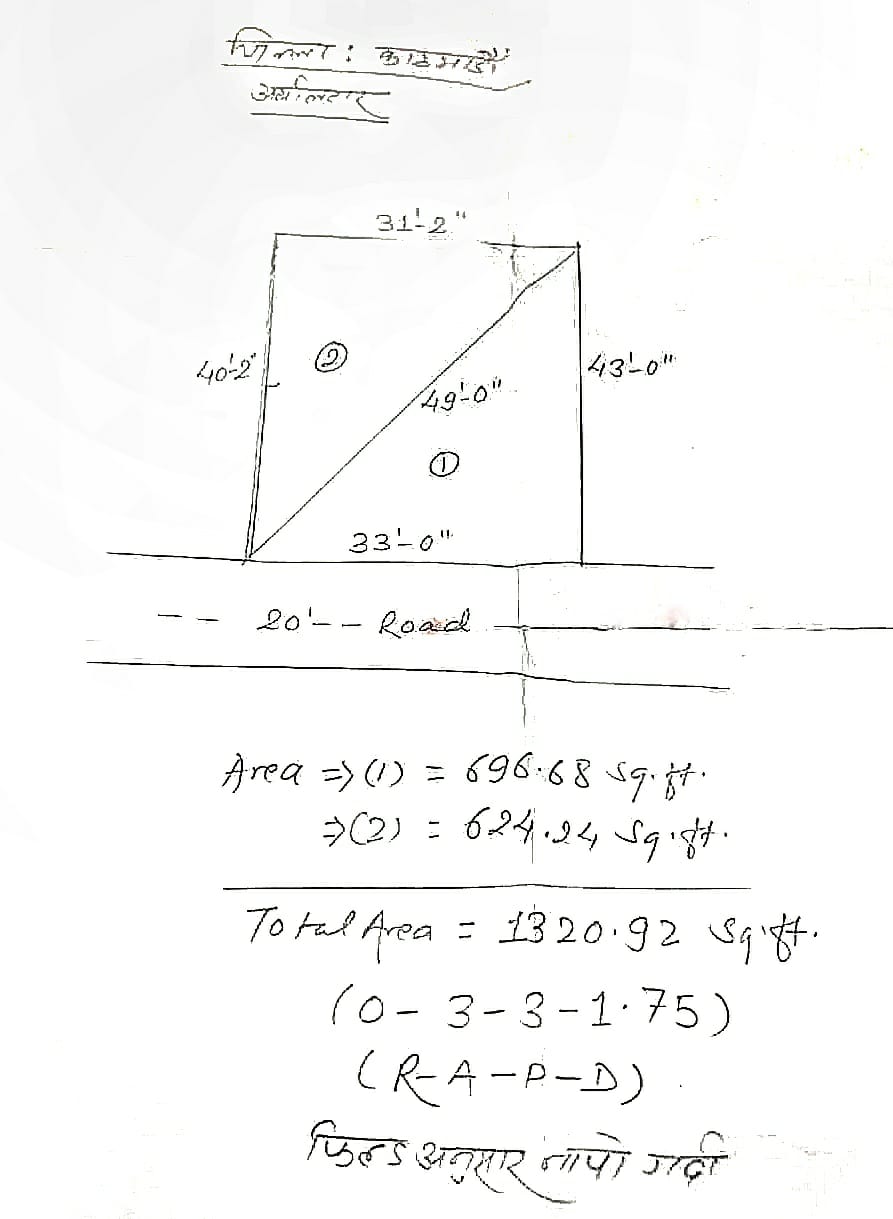 जिल्ला : काठमाडौं
31'-2"
40'-2"
②
49'-0"
43'-0"
①
33'-0"
-- 20' -- Road
Area ⇒ (1) = 696.68 sq.ft.
⇒ (2) = 624.24 sq.ft.
Total Area = 1320.92 sq.ft.
(0-3-3-1.75)
(R-A-P-D)
फिल्ड अनुसार नापो गर्दा